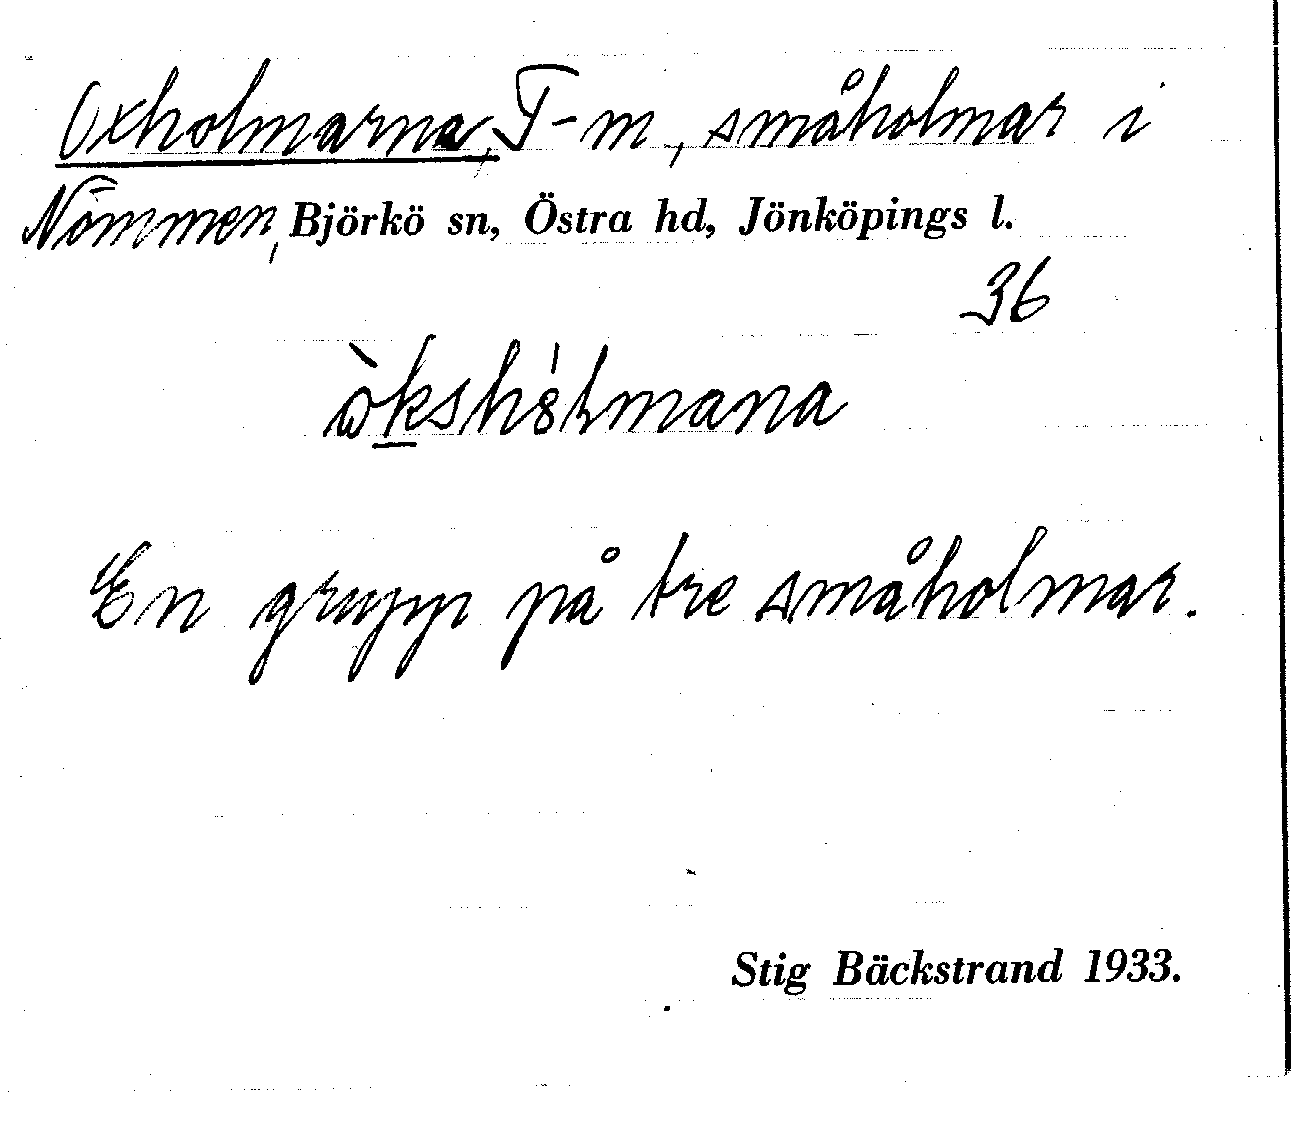 Oxholmarna, T-m, småholmar i
Nömmen, Björkö sn, Östra hd, Jönköpings l.
36
En grupp på tre småholmar.
Stig Bäckstrand 1933.